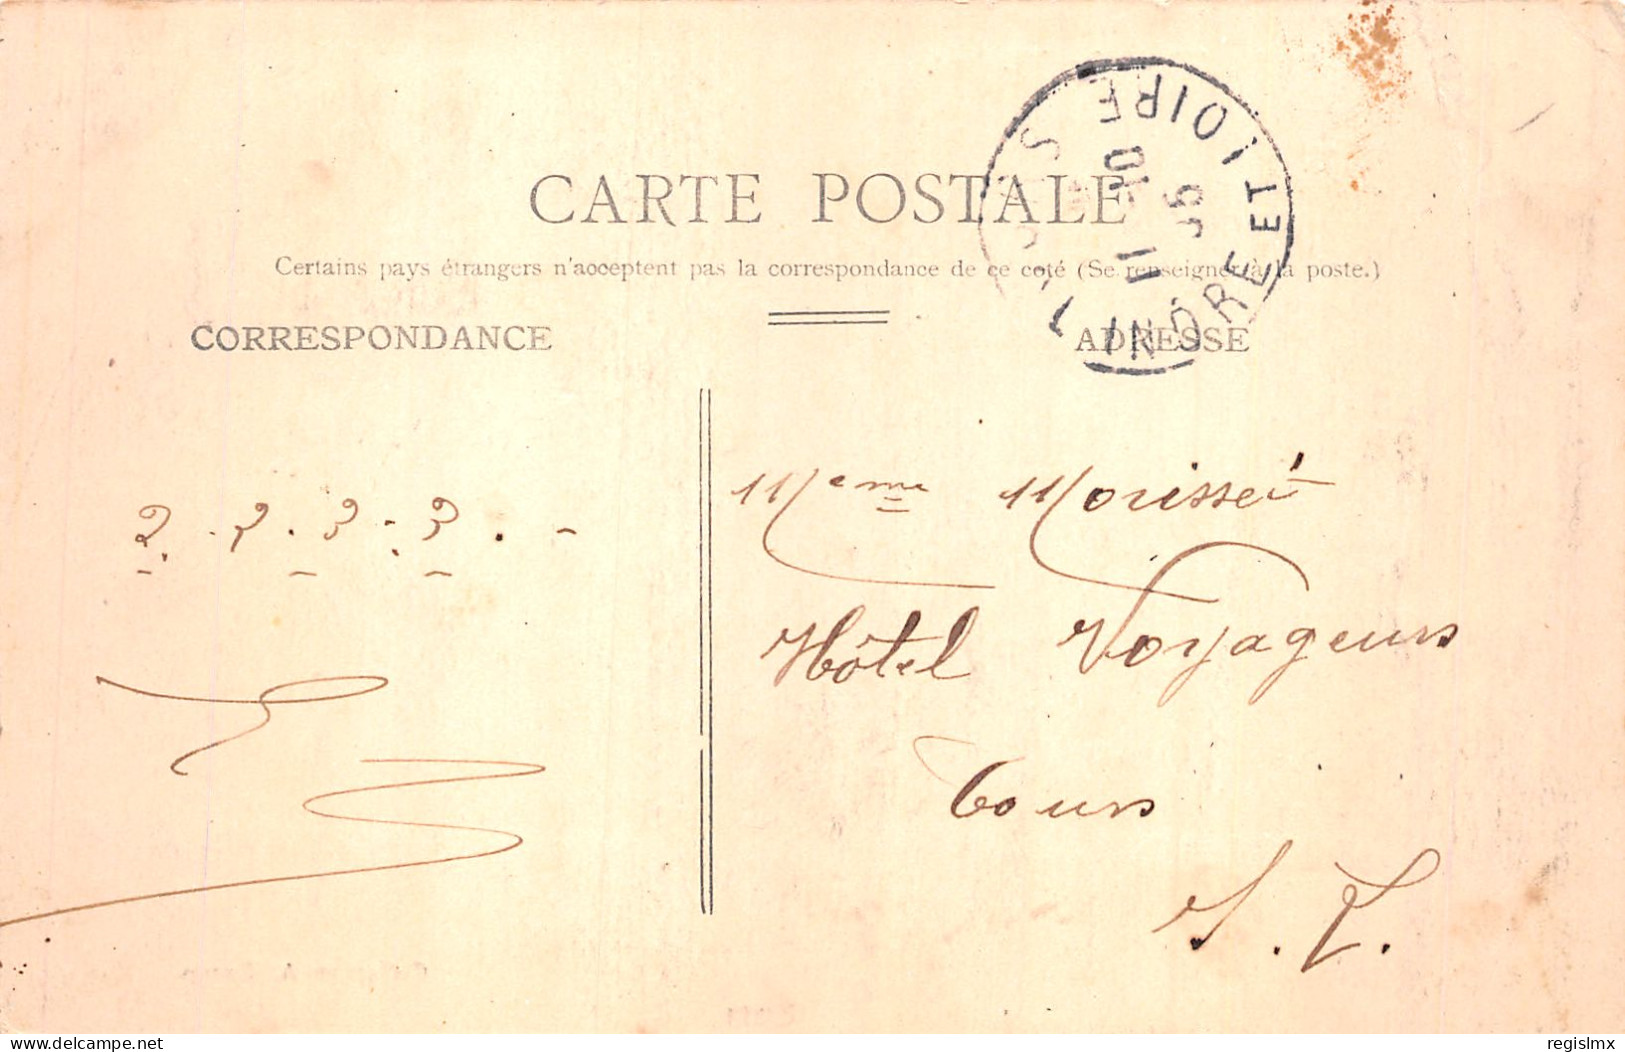 CARTE POSTALE
Certains pays étrangers n'acceptent pas la correspondance de ce coté (Se renseigner à la poste.)
CORRESPONDANCE
ADRESSE
TOURS
INDRE ET LOIRE
11 10
05
Mme Morisset
Hôtel Voyageurs
Tours
delcampe.net
regislmx